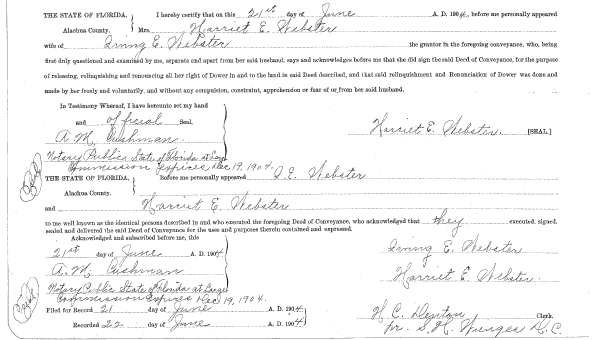 THE STATE OF FLORIDA, I hereby certify that on this 21st day of June A. D. 1904, before me personally appeared
Alachua County. Mrs. Harriet E. Webster
wife of Irving E. Webster the grantor in the foregoing conveyance, who, being
first duly questioned and examined by me, separate and apart from her said husband, says and acknowledges before me that she did sign the said Deed of Conveyance, for the purpose
of releasing, relinquishing and renouncing all her right of Dower in and to the land in said Deed described, and that said relinquishment and Renunciation of Dower was done and
made by her freely and voluntarily, and without any compulsion, constraint, apprehension or fear of or from her said husband.
In Testimony Whereof, I have hereunto set my hand
and official Seal.
Harriet E. Webster. [SEAL.]
A. M. Cushman.
Notary Public State of Florida at Large
Commission Expires Dec 19, 1904.
THE STATE OF FLORIDA, Before me personally appeared I. E. Webster
Alachua County.
and Harriet E. Webster
to me well known as the identical persons described in and who executed the foregoing Deed of Conveyance, who acknowledged that they executed, signed,
sealed and delivered the said Deed of Conveyance for the uses and purposes therein contained and expressed.
Acknowledged and subscribed before me, this
21st day of June A. D. 1904
Irving E. Webster
A. M. Cushman
Harriet E. Webster.
Notary Public State of Florida at Large
Commission Expires Dec 19, 1904.
Filed for Record 21 day of June A. D. 1904
H. C. Denton Clerk.
Recorded 22 day of June A. D. 1904
D. C.